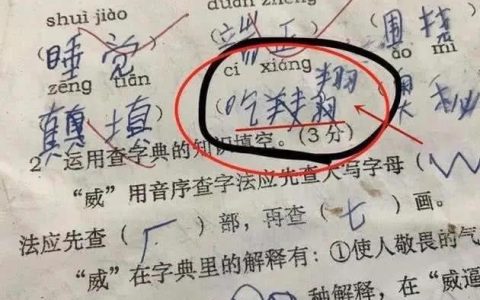 shuì jiào duān zhèng
(睡觉) (端正) (围挠
zēng tiān cí xiáng ào mì
(填) (吃翔) 翔
2 运用查字典的知识填空。(3分)
“威”用音序查字法应先查大写字母(W
法应先查(厂)部，再查(七)画。
“威”在字典里的解释有：①使人敬畏的气
种解释，在“威逼